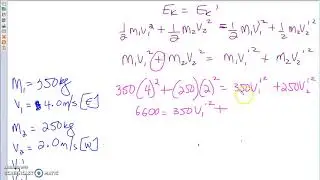 E_K = E_K'
½m₁v₁² + ½m₂v₂² = ½m₁v₁'² + ½m₂v₂'²
m₁v₁² + m₂v₂² = m₁v₁'² + m₂v₂'²
m₁ = 350kg
v₁ = 4.0m/s [E]
m₂ = 250kg
v₂ = 2.0m/s [W]
350(4)² + (250)(2)² = 350v₁'² + 250v₂'²
6600 = 350v₁'² +